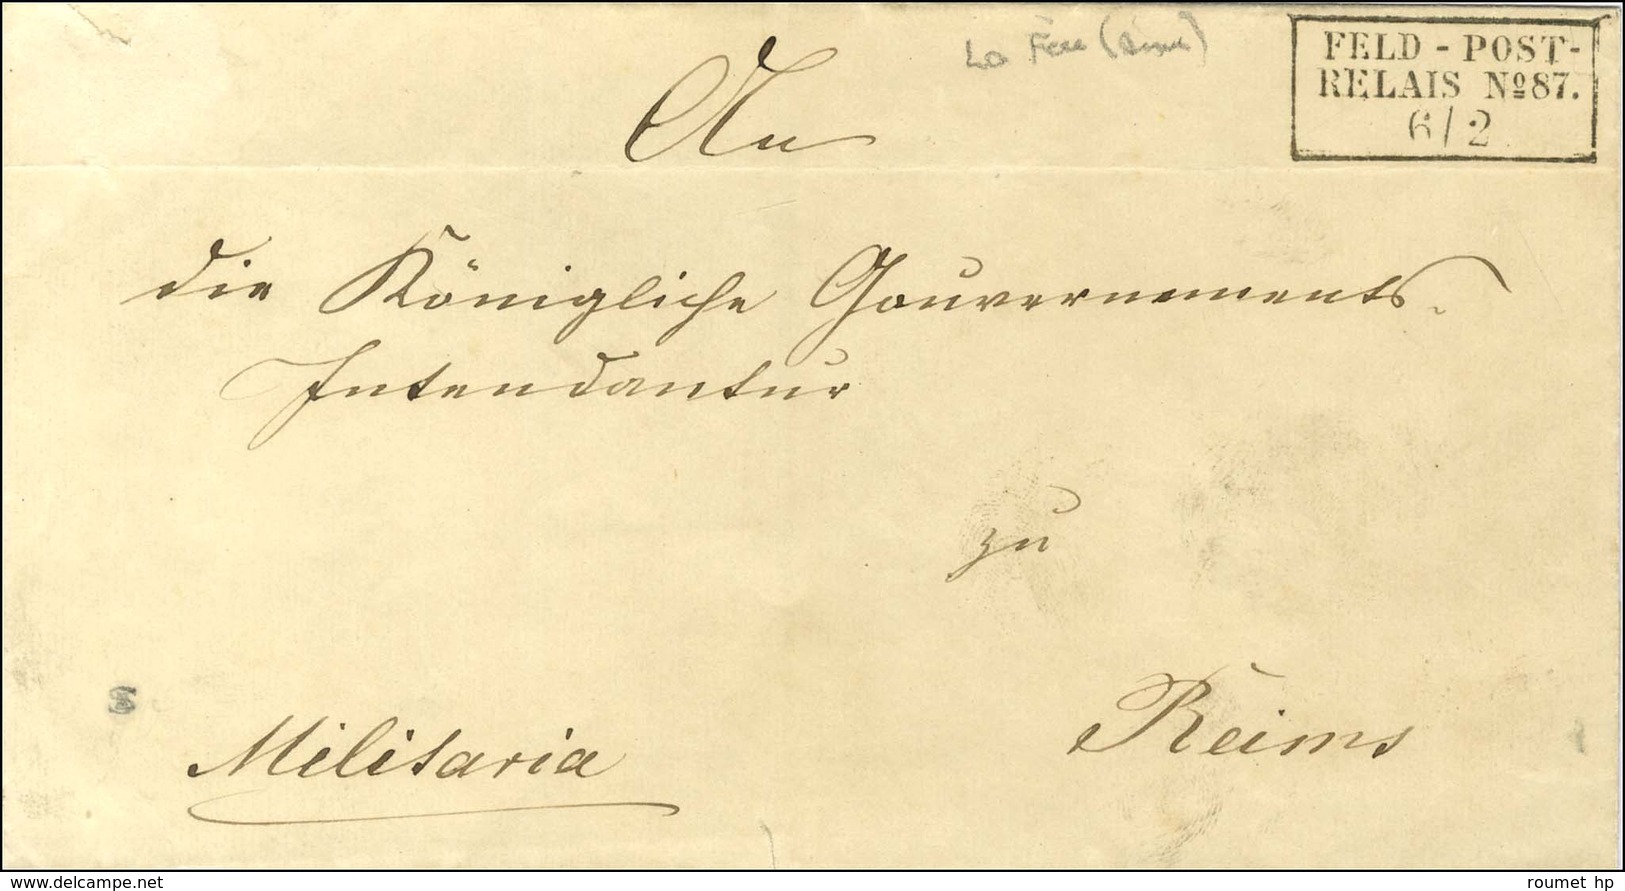 La Fère (Aisne)
FELD - POST-
RELAIS Nº 87.
6/2
An
die Königliche Gouvernements-
Intendantur
zu
Reims
Militaria
www.delcampe.net
roumet hp